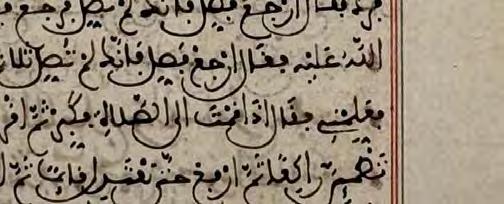 فرد فقال ارجع فصل فانك لم تصل فرجع
الله عليه فقال ارجع فصل فانك لم تصل ثلاثا
فعلمني فقال اذا قمت الى الصلاة فكبر ثم اقر
تطمئن راكعا ثم ارفع حتى تعتدل قائما ثم ا